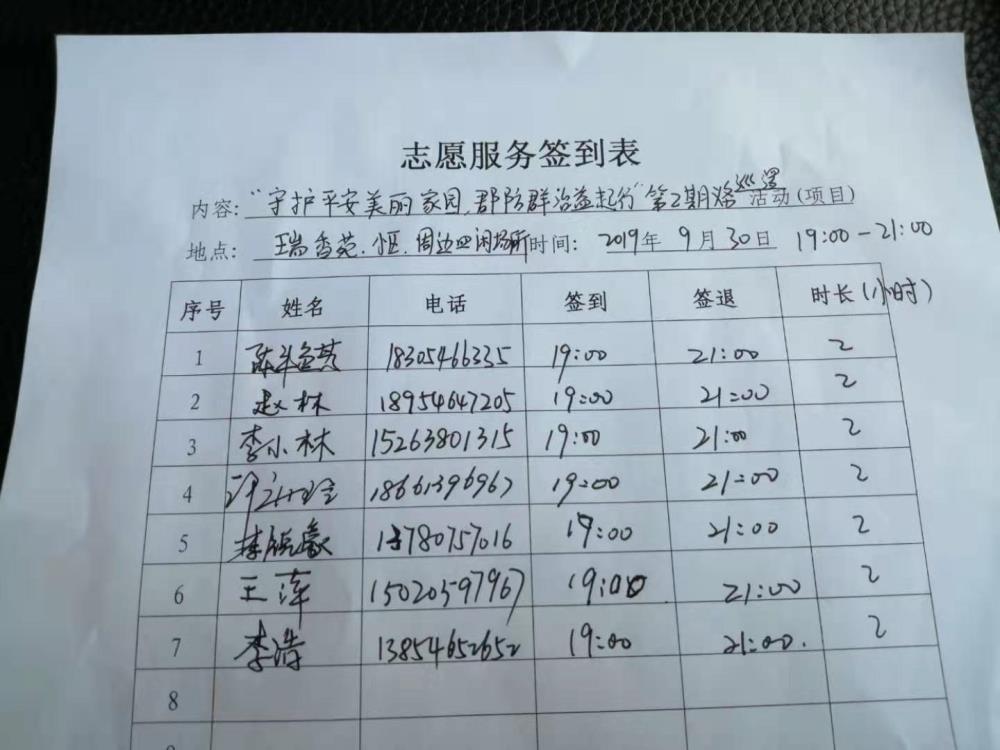 志愿服务签到表
内容:"守护平安美丽家园,群防群治益起行"第2期 巡逻活动(项目)
地点: 瑞香苑小区、周边 场所 时间: 2019年9月30日 19:00-21:00
序号 姓名 电话 签到 签退 时长(小时)
1 18305466335 19:00 21:00 2
2 赵林 18954647205 19:00 21:00 2
3 李小林 15263801315 19:00 21:00 2
4 18661396967 19:00 21:00 2
5 李 13780757016 19:00 21:00 2
6 王萍 15020597967 19:00 21:00 2
7 李涛 13854652652 19:00 21:00. 2
8